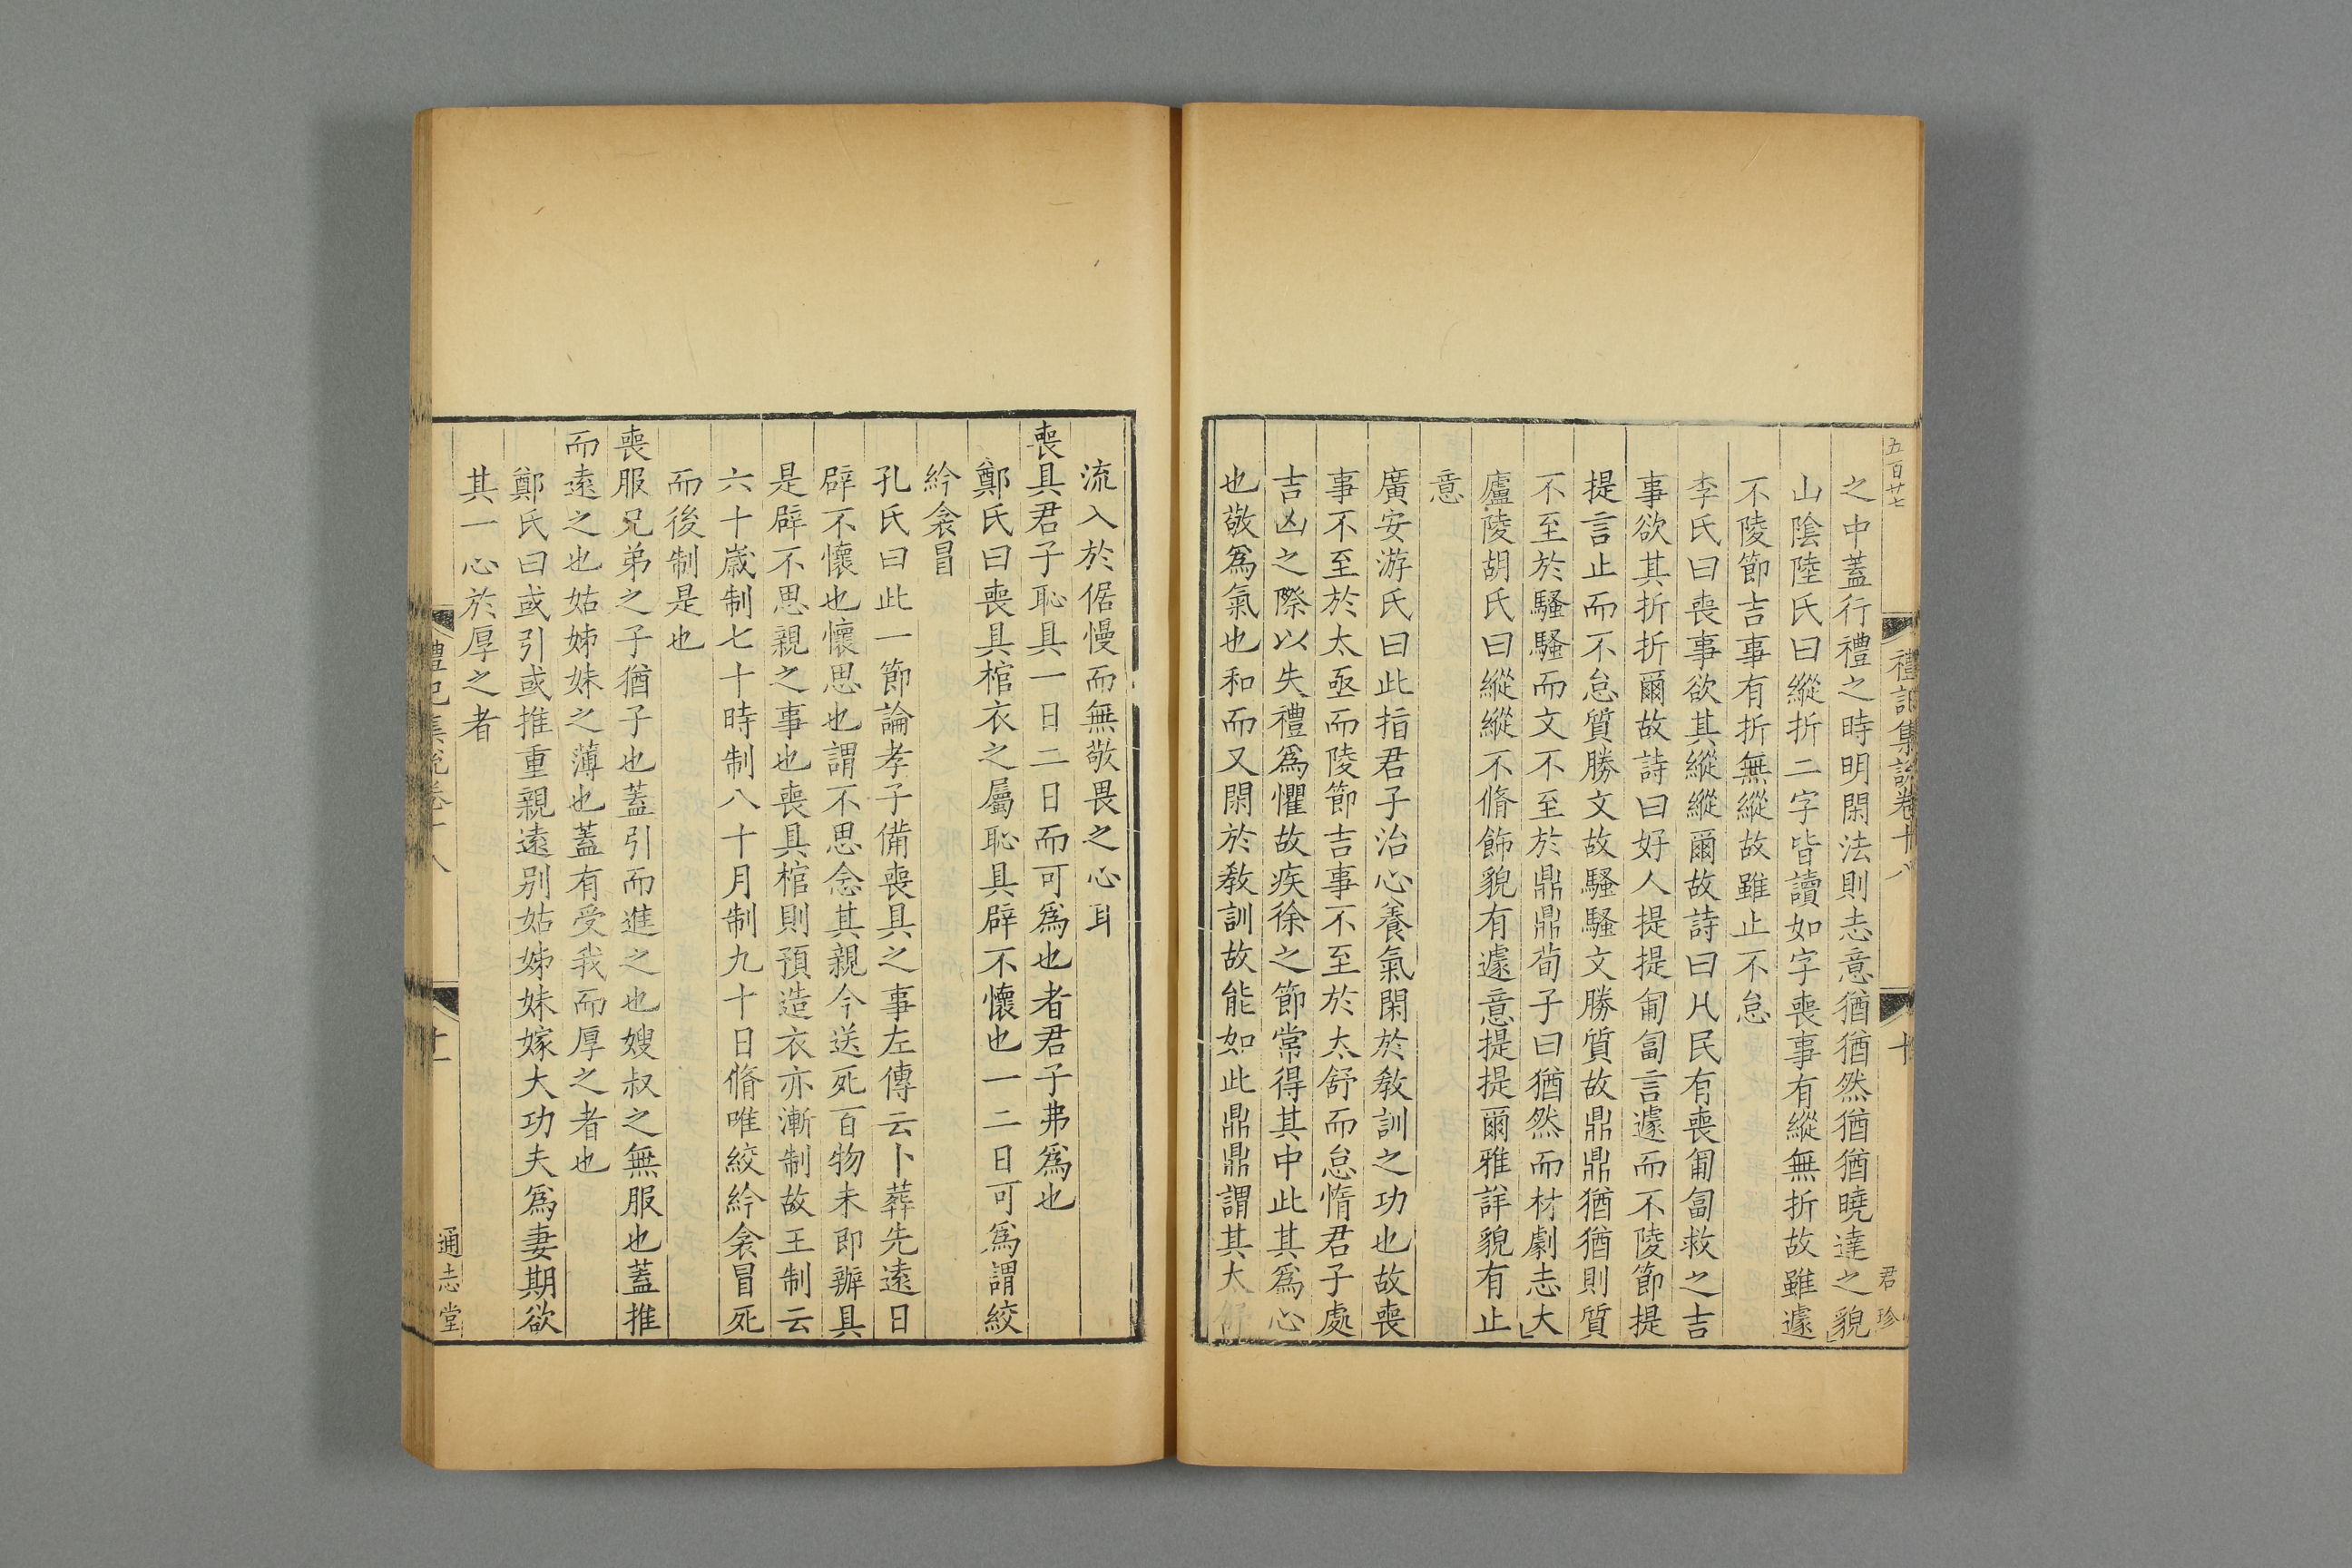 五百廿七
禮記集說卷十八
十
君珍
之中蓋行禮之時明閑法則志意猶猶然猶猶曉達之貌
山陰陸氏曰縱折二字皆讀如字喪事有縱無折故雖遽
不陵節吉事有折無縱故雖止不怠
李氏曰喪事欲其縱縱爾故詩曰凡民有喪匍匐救之吉
事欲其折折爾故詩曰好人提提匍匐言遽而不陵節提
提言止而不怠質勝文故騷騷文勝質故鼎鼎猶猶則質
不至於騷騷而文不至於鼎鼎荀子曰猶然而材劇志大
廬陵胡氏曰縱縱不脩飾貌有遽意提提爾雅詳貌有止
意
廣安游氏曰此指君子治心養氣閑於敎訓之功也故喪
事不至於太亟而陵節吉事不至於太舒而怠惰君子處
吉凶之際以失禮爲懼故疾徐之節常得其中此其爲心
也敬爲氣也和而又閑於敎訓故能如此鼎鼎謂其太舒
流入於倨慢而無敬畏之心耳
喪具君子恥具一日二日而可爲也者君子弗爲也
鄭氏曰喪具棺衣之屬恥具辟不懷也一二日可爲謂絞
紟衾冒
孔氏曰此一節論孝子備喪具之事左傳云卜葬先遠日
辟不懷也懷思也謂不思念其親今送死百物未即辦具
是辟不思親之事也喪具棺則預造衣亦漸制故王制云
六十歲制七十時制八十月制九十日脩唯絞紟衾冒死
而後制是也
喪服兄弟之子猶子也蓋引而進之也嫂叔之無服也蓋推
而遠之也姑姊妹之薄也蓋有受我而厚之者也
鄭氏曰或引或推重親遠別姑姊妹嫁大功夫爲妻期欲
其一心於厚之者
禮記集說卷十八
十一
通志堂